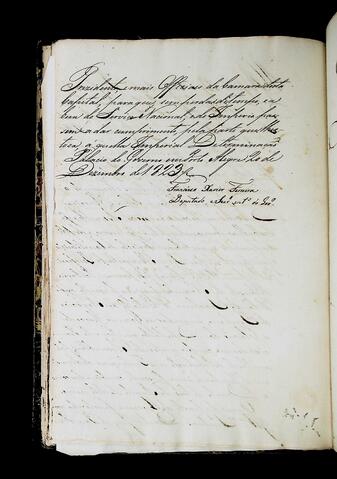 Prezidente e mais Officiaes da Camara desta
Capital, para que sem perda de tempo, e a
bem do Serviço Nacional, e do Imperio, pas
sem a dar cumprimento, pela parte que lhes
toca, á quella Imperial Determinação
Palacio do Governo em Porto Alegre 20 de
Dezembro de 1823
Francisco Xavier Ferreira
Deputado e Secr.º